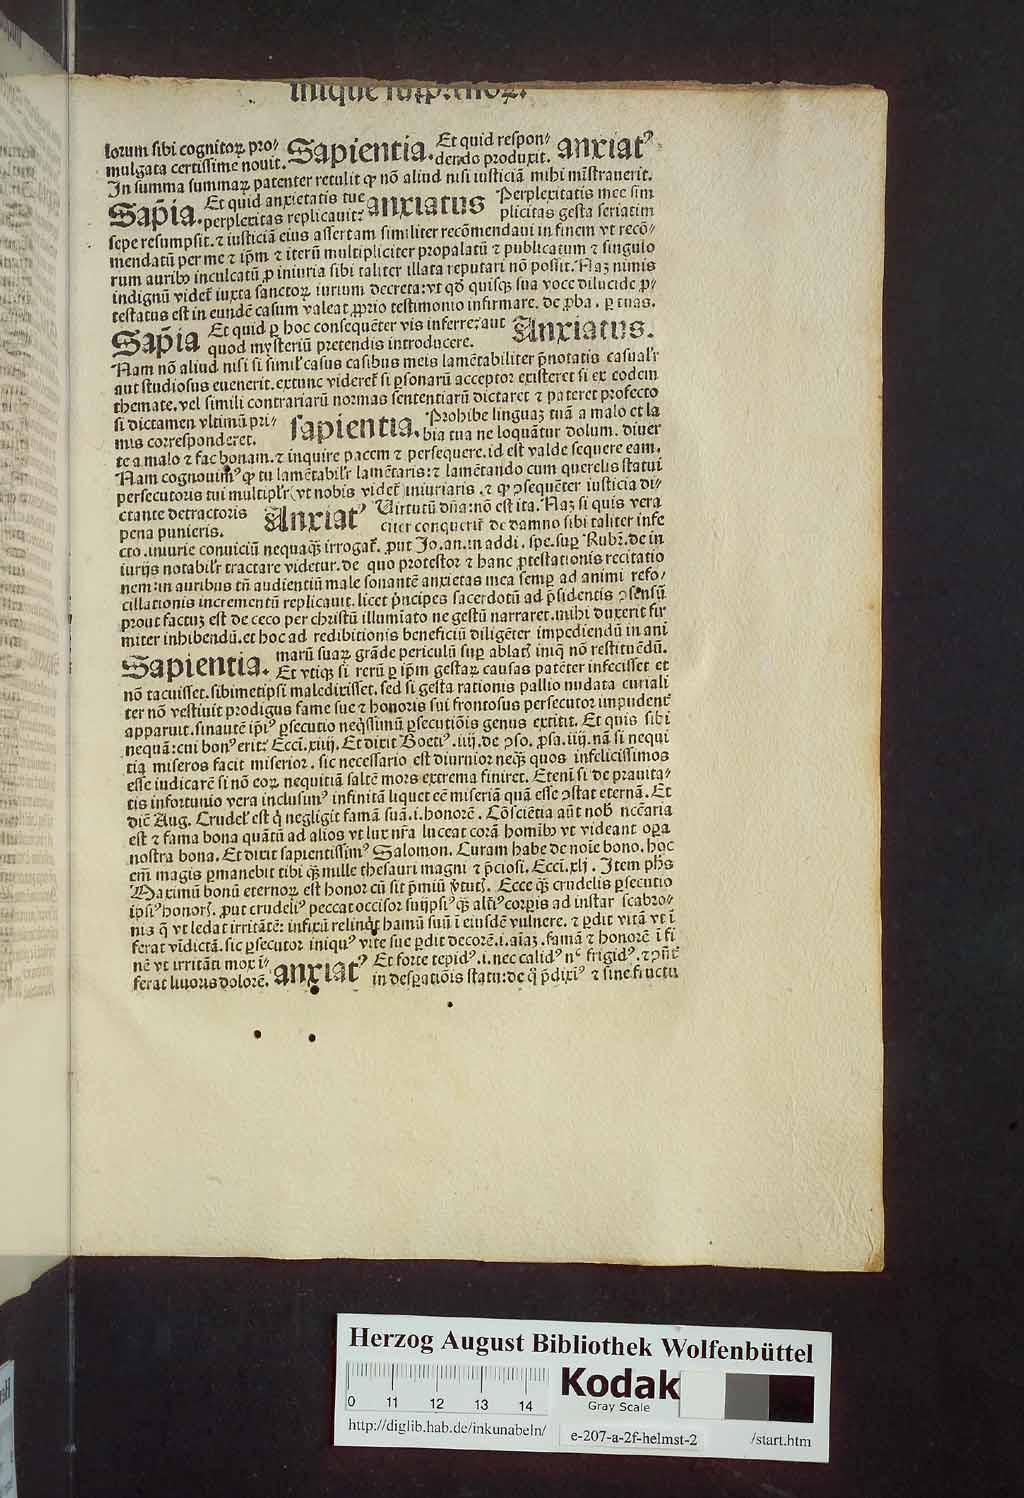 lorum sibi cognitoꝝ pro⸗ Sapientia. Et quid respon⸗ anxiatꝰ
mulgata certissime nouit. dendo produxit.
In summa summaꝝ patenter retulit ꝙ nō aliud nisi iusticiā mihi mīstrauerit.
Sap̄ia. Et quid anxietatis tue anxiatus Perplexitatis mee sim
perplexitas replicauit: plicitas gesta seriatim
sepe resumpsit. ⁊ iusticiā eius assertam similiter recōmendaui in finem vt recō⸗
mendatū per me ⁊ ip̄m ⁊ iterū multipliciter propalatū ⁊ publicatum ⁊ singulo
rum auribꝰ inculcatū ꝓ iniuria sibi taliter illata reputari nō possit. Naꝫ nimis
indignū videt᷑ iuxta sanctoꝝ iurium decreta: vt qđ quisqꝫ sua voce dilucide ꝓ⸗
testatus est in eundē casum valeat ꝓprio testimonio infirmare. de ꝓba. ꝑ tuas.
Sap̄ia Et quid ꝑ hoc consequēter vis inferre: aut Anxiatus.
quod mysteriū pretendis introducere.
Nam nō aliud nisi si simil᷑ casus casibus meis lamētabiliter p̄notatis casual᷑r
aut studiosus euenerit. extunc videret᷑ si ꝑsonarū acceptor existeret si ex eodem
themate. vel simili contrariarū normas sententiarū dictaret ⁊ pateret profecto
si dictamen vltimū pri⸗ sapientia. Prohibe linguaꝫ tuā a malo et la
mis corresponderet. bia tua ne loquātur dolum. diuer
te a malo ⁊ fac bonam. ⁊ inquire pacem ⁊ persequere. id est valde sequere eam.
Nam cognouimꝰ ꝙ tu lamētabil᷑r lamētaris: ⁊ lamētando cum querelis statui
persecutoris tui multipl᷑r (vt nobis videt᷑) iniuriaris. ⁊ ꝙ ꝯsequēter iusticia di⸗
ctante detractoris Anxiatꝰ Virtutū dn̄a: nō est ita. Naꝫ si quis vera
pena punieris. citer conquerit᷑ de damno sibi taliter infe
cto. iniurie conuiciū nequaqꝫ irrogat᷑. ꝓut Jo. an. in addi. spe. suꝑ Rubr̄. de in
iurijs notabil᷑r tractare videtur. de quo protestor ⁊ hanc ꝓtestationis recitatio
nem: in auribus tn̄ audientiū male sonantē anxietas mea semꝑ ad animi refo⸗
cillationis incrementū replicauit. licet p̄ncipes sacerdotū ad p̄sidentis ꝯsensū
prout factuꝫ est de ceco per christū illumīato ne gestū narraret. mihi duxerit fir
miter inhibendū. et hoc ad redibitionis beneficiū diligēter impediendū in ani
Sapientia. marū suaꝝ grāde periculū suꝑ ablatꝭ iniqꝫ nō restituēdū.
Et vtiqꝫ si rerū ꝑ ip̄m gestaꝝ causas patēter infecisset et
nō tacuisset. sibimetipsi maledixisset. sed si gesta rationis pallio nudata curiali
ter nō vestiuit prodigus fame sue ⁊ honoris sui frontosus persecutor impudent᷑
apparuit. sinautē ip̄iꝰ ꝑsecutio neqꝫssimū ꝑsecutiōis genus extitit. Et quis sibi
nequā: cui bonꝰ erit: Ecci. xiiij. Et dicit Boetiꝰ. iiij. de ꝯso. ꝓsa. iiij. nā si nequi
tia miseros facit miserior. sic necessario est diurnior neqꝫ quos infelicissimos
esse iudicarē si nō eoꝝ nequitiā saltē mors extrema finiret. Etenī si de prauita⸗
tis infortunio vera inclusimꝰ infinitā liquet eē miseriā quā esse ꝯstat eternā. Et
dic̄ Aug. Crudel᷑ est q̇ negligit famā suā. i. honorē. Cōscientia aūt nob̄ nccēaria
est ⁊ fama bona quātū ad alios vt lux nr̄a luceat corā hom̄ibꝰ vt videant oꝑa
nostra bona. Et dixit sapientissimꝰ Salomon. Curam habe de noīe bono. hoc
em̄ magis ꝑmanebit tibi qꝫ mille thesauri magni ⁊ p̄ciosi. Ecci. xlj. Item ph̄s
Maximū bonū eternoꝝ est honor cū sit p̄miū v̄tutꝭ. Ecce qꝫ crudelis ꝑsecutio
ip̄siꝰ honorꝭ. ꝓut crudeliꝰ peccat occisor suijpsiꝰ qꝫ altiꝰ corꝑis ad instar scabro⸗
nis q̄ vt ledat irritātē: infixū relinq̇t hamū suū ī eiusdē vulnere. ⁊ ꝑdit vitā vt ī
ferat vīdictā. sic ꝑsecutor iniquꝰ vite sue ꝑdit decorē. i. aīaꝫ. famā ⁊ honorē ī fi
nē vt irritāti mox ī⸗ anxiatꝰ Et forte tepidꝰ. i. nec calidꝰ nc̄ frigidꝰ. ⁊ ꝑn̄t
ferat liuoris dolorē. in desꝑatiōis statu: de q̄ p̄dixiꝰ ⁊ sine fructu
Herzog August Bibliothek Wolfenbüttel
0 11 12 13 14
Kodak
Gray Scale
http://diglib.hab.de/inkunabeln/
e-207-a-2f-helmst-2
/start.htm